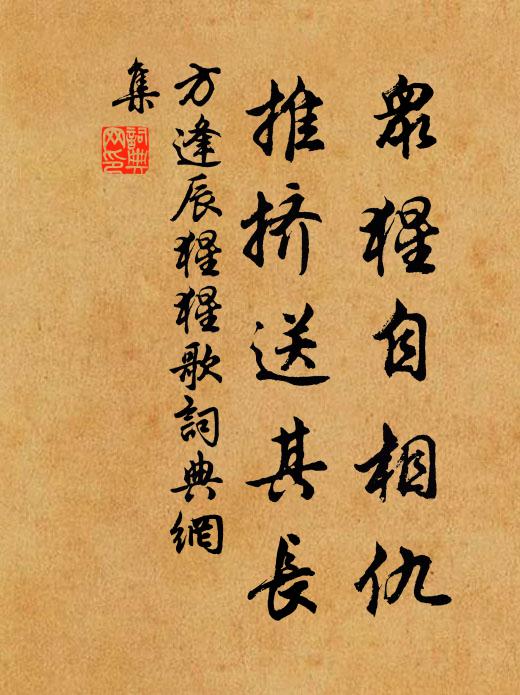 衆猩自相仇
推挤送其長
方逢辰猩猩歌詞典網
集
詞典網印